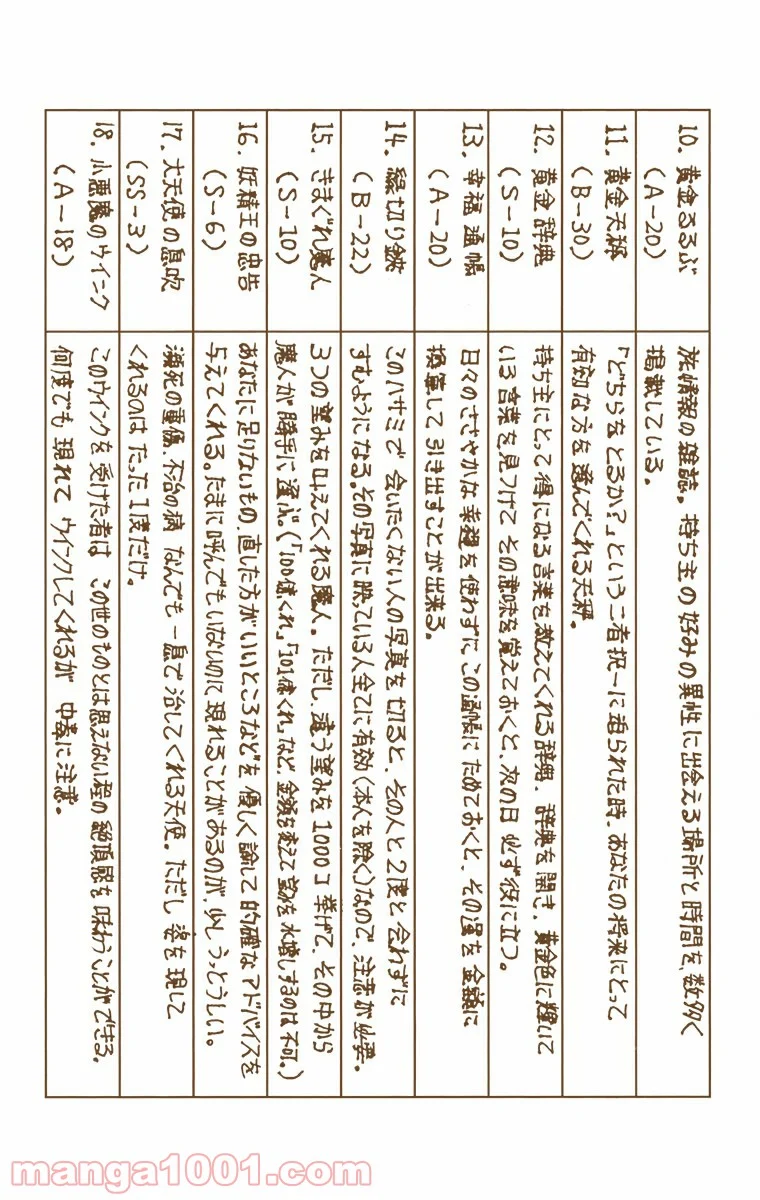 10. 黄金るるぶ
(A-20)
旅情報の雑誌。持ち主の好みの異性に出会える場所と時間を、数多く
掲載している。
11. 黄金天秤
(B-30)
「どちらをとるか?」という二者択一に迫られた時、あなたの将来にとって
有効な方を選んでくれる天秤。
12. 黄金辞典
(S-10)
持ち主にとって得になる言葉を教えてくれる辞典。辞典を開き、黄金色に輝いて
いる言葉を見つけて その意味を覚えておくと、次の日 必ず役に立つ。
13. 幸福通帳
(A-20)
日々のささやかな幸福を使わずに この通帳に ためておくと、その運を金額に
換算して引き出すことが出来る。
14. 縁切り鋏
(B-22)
このハサミで 会いたくない人の写真を切ると、その人と2度と会わずに
すむようになる。その写真に映っている人全てに有効(本人を除く)なので、注意が必要。
15. きまぐれ魔人
(S-10)
3つの望みを叶えてくれる魔人。ただし、違う望みを1000コ挙げて、その中から
魔人が勝手に選ぶ。(「100億くれ」「101億くれ」など、金額を変えて望みを水増しするのは不可。)
16. 妖精王の忠告
(S-6)
あなたに足りないもの、直した方がいいところなどを 優しく諭して 的確なアドバイスを
与えてくれる。たまに呼んでもいないのに 現れることがあるのが、少しうっとうしい。
17. 大天使の息吹
(SS-3)
瀕死の重傷、不治の病 なんでも 一息で治してくれる天使。ただし 姿を現して
くれるのは たった1度だけ。
18. 小悪魔のウインク
(A-18)
このウインクを受けた者は この世のものとは思えない程の絶頂感を味わうことができる。
何度でも 現れて ウインクしてくれるが 中毒に注意。
manga1001.com